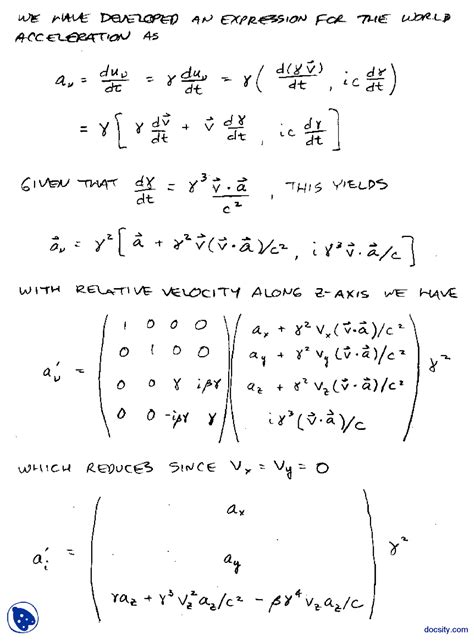 WE HAVE DEVELOPED AN EXPRESSION FOR THE WORLD
ACCELERATION AS
a_ν = du_ν/dτ = γ du_ν/dt = γ ( d(γv⃗)/dt , ic dγ/dt )
= γ [ γ dv⃗/dt + v⃗ dγ/dt , ic dγ/dt ]
GIVEN THAT dγ/dt = γ³ v⃗·a⃗/c² , THIS YIELDS
a⃗_ν = γ² [ a⃗ + γ² v⃗(v⃗·a⃗)/c² , iγ³ v⃗·a⃗/c ]
WITH RELATIVE VELOCITY ALONG Z-AXIS WE HAVE
1 0 0 0 a_x + γ² v_x (v⃗·a⃗)/c²
0 1 0 0 a_y + γ² v_y (v⃗·a⃗)/c²
a_ν' = 0 0 γ iβγ a_z + γ² v_z (v⃗·a⃗)/c² γ²
0 0 -iβγ γ iγ³(v⃗·a⃗)/c
WHICH REDUCES SINCE V_x = V_y = 0
a_x
a_i' = a_y γ²
γa_z + γ³ v_z² a_z/c² - βγ⁴ v_z a_z/c
docsity.com